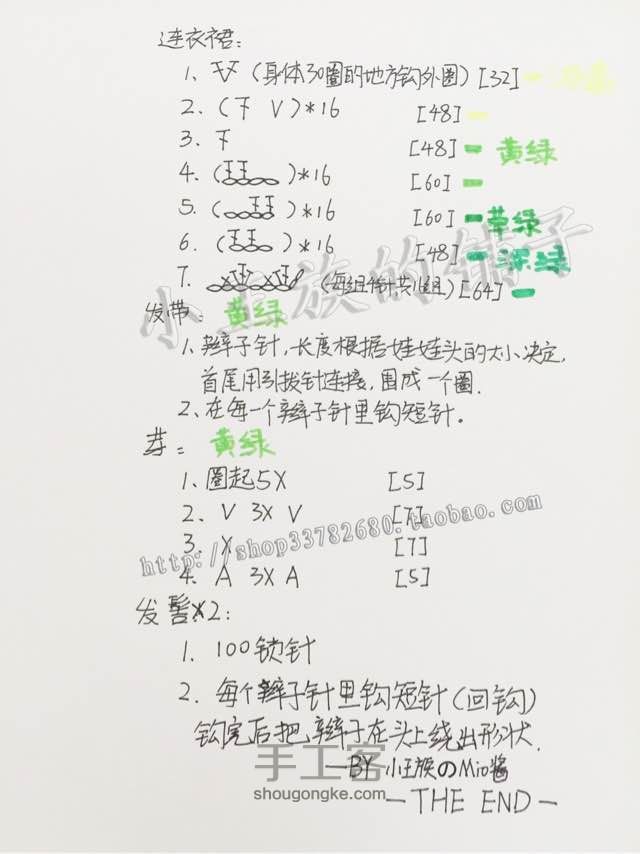 连衣裙:
1、(身体30圈的地方钩外圈) [32]
2、( V )*16 [48]
3、 [48] 黄绿
4、( )*16 [60]
5、( )*16 [60] 草绿
6、( )*16 [48] 深绿
7、 [64]
发带: 黄绿
1、辫子针,长度根据娃娃头的大小决定,
首尾用引拔针连接,围成一个圈.
2、在每一个辫子针里钩短针。
芽: 黄绿
1、圈起5X [5]
2、V 3X V [7]
3、X [7]
4、A 3X A [5]
发髻X2:
1、100锁针
2、每个辫子针里钩短针(回钩)
钩完后把辫子在头上绕出形状.
—BY 小王族のMio酱
—THE END—
小王族的铺子
http://shop33782680.taobao.com
手工客
shougongke.com